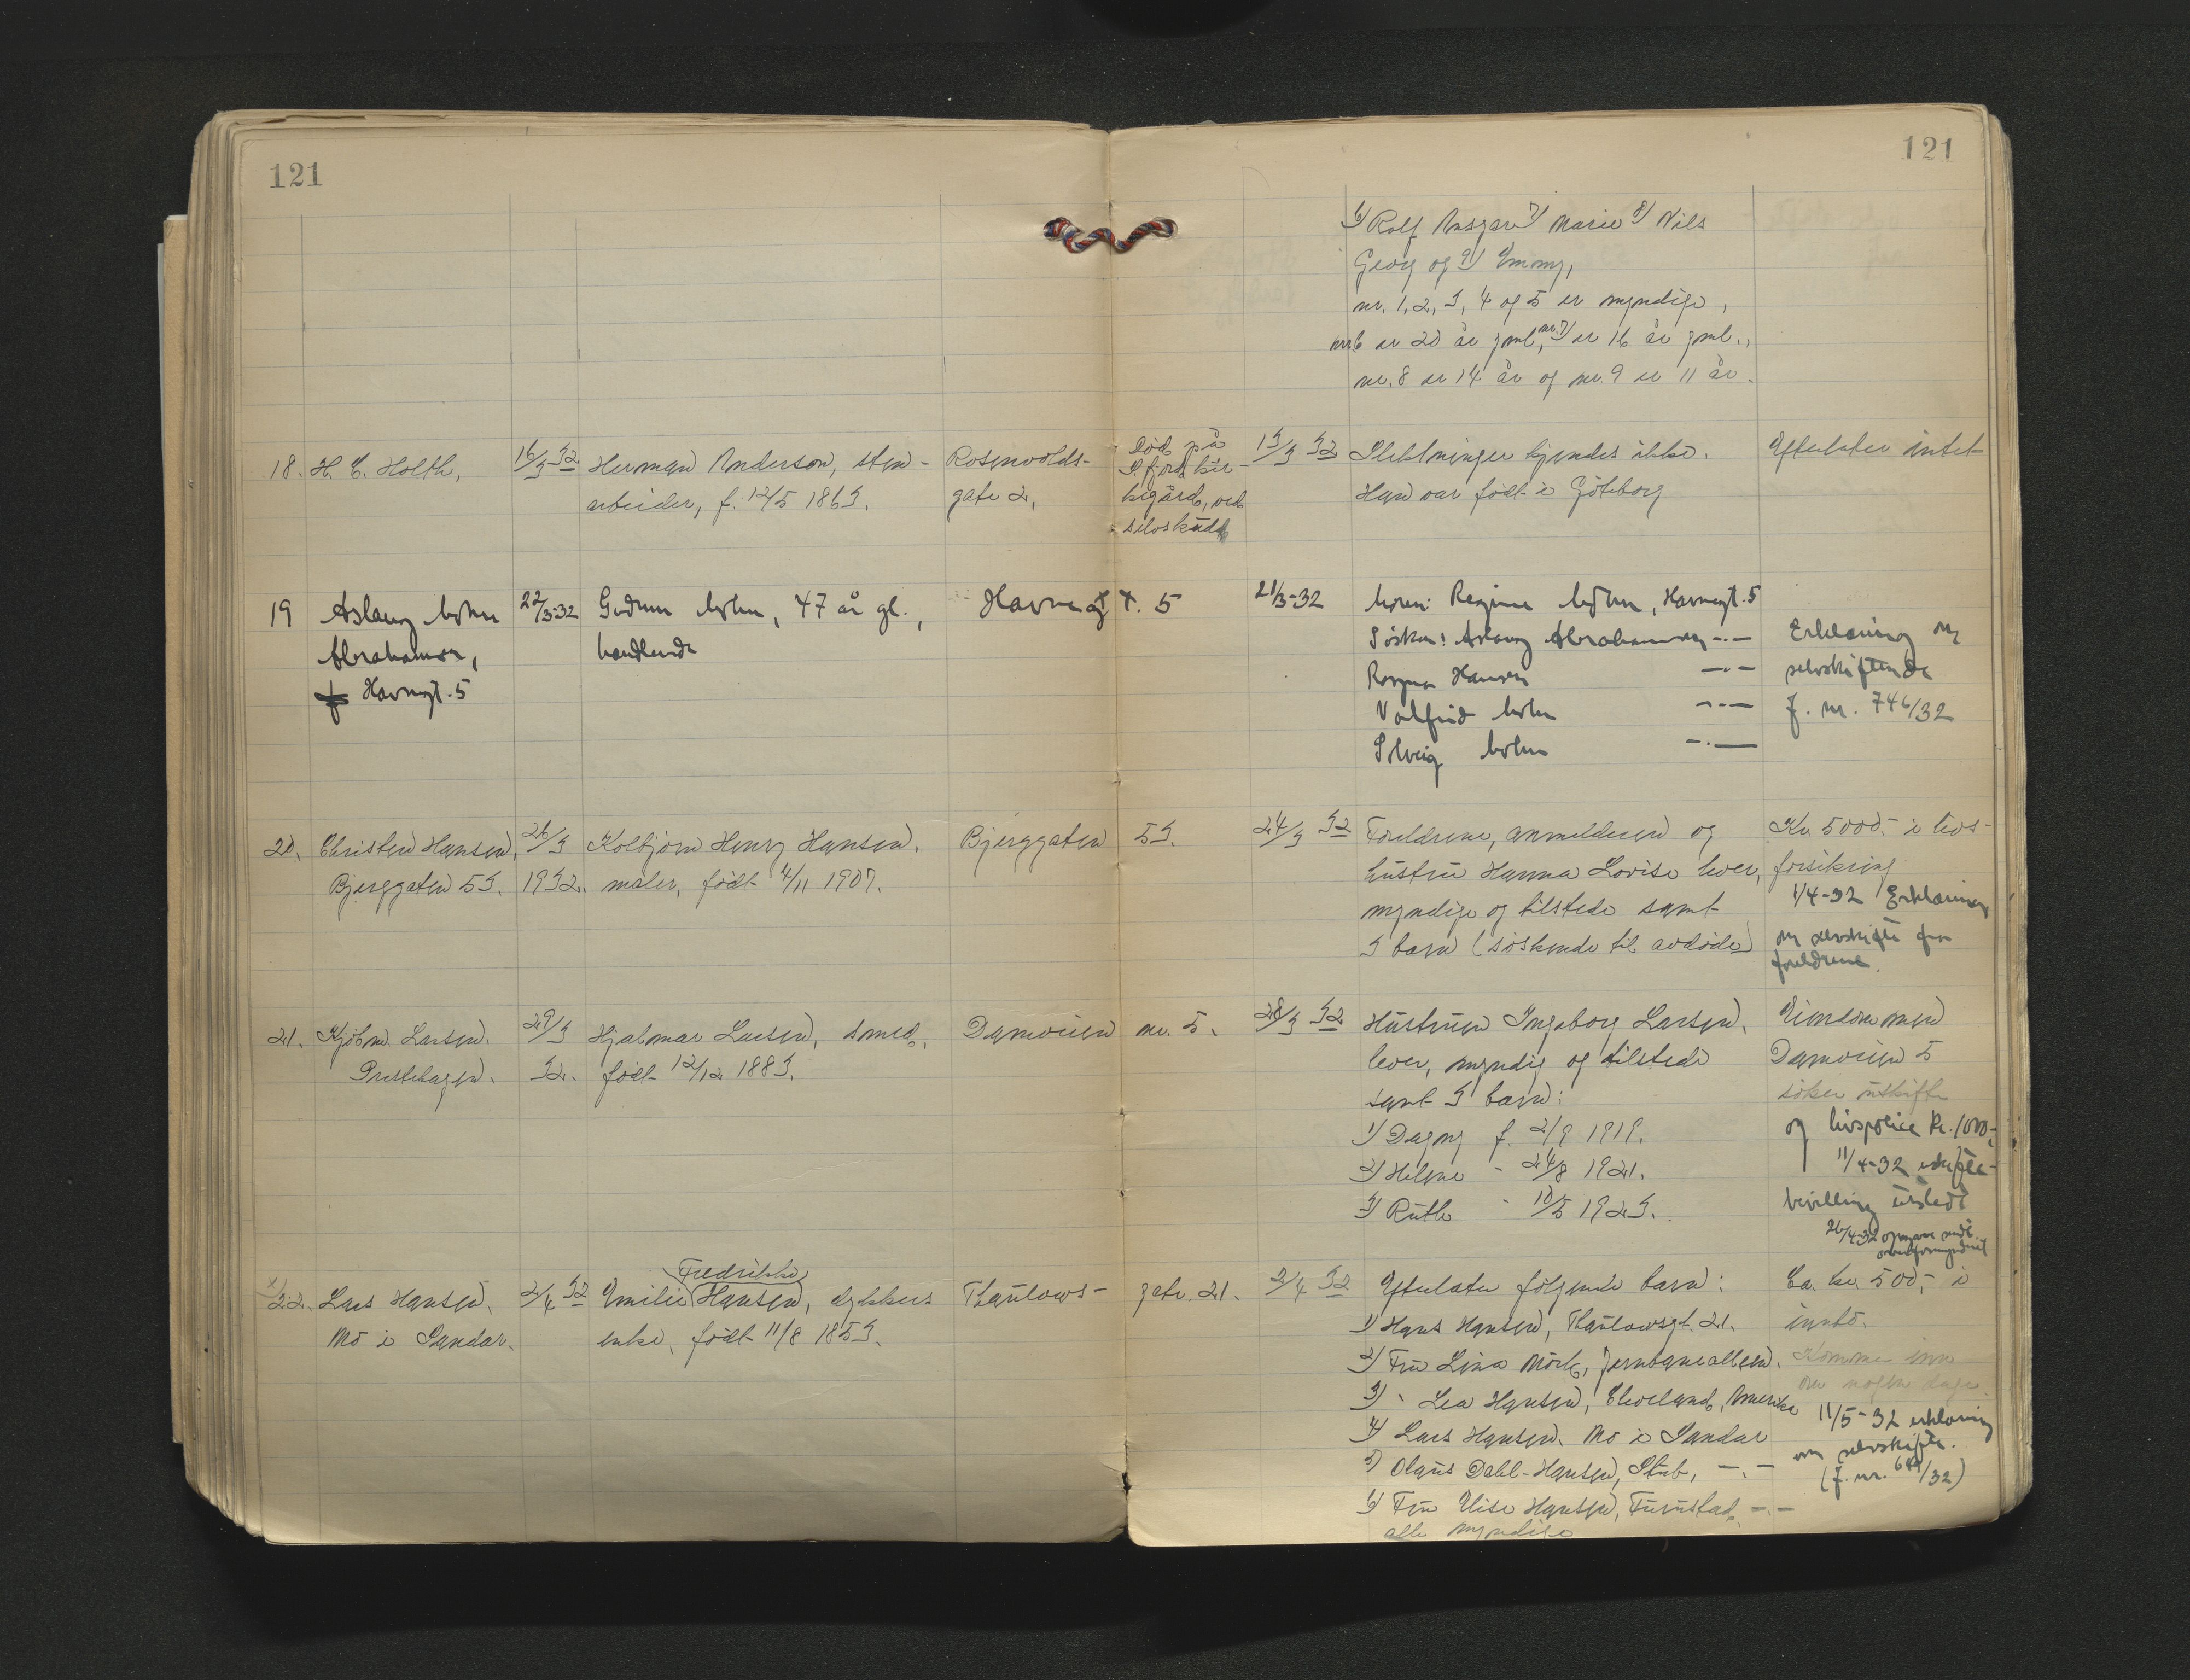 121
121
6) Rolf Ansgar 7) Marie 8) Nils
Georg og 9) Emmy,
nr. 1, 2, 3, 4 og 5 er myndige,
nr 6 er 20 år gml, nr. 7) er 16 år gml.,
nr. 8 er 14 år og nr. 9 er 11 år.
18. H. C. Holth, 16/3 32 Herman Anderson, sten- Rosenvolds- Död på 13/3 32 Slektninger kjendes ikke. Efterlater intet
arbeider, f. 12/5 1863. gate 2, S.fjord kir- Han var födt i Göteborg
kegård, ved
selvskudd
19 Aslaug Holm 22/3-32 Gudrun Holm, 47 år gl., Havnegt. 5 21/3-32 Moren: Regine Holm, Havnegt. 5
Abrahamsen, handlende Søsken: Aslaug Abrahamsen -.- Erklæring om
Havnegt. 5 Hansen -.- selvskiftende
Valfrid Holm -.- J. nr. 746/32
Solveig Holm -.-
20. Christen Hansen, 26/3 Kolbjörn Henry Hansen, Bjerggaten 53. 24/3 32 Foreldrene, anmelderen og Kr. 5000,- i livs-
Bjerggaten 53. 1932. maler, födt 4/11 1907. hustru Hanna Lovise lever, forsikring
myndige og tilstede samt 1/4-32 Erklæring
3 barn (söskende til avdöde) om selvskifte fra
foreldrene.
21. Kjöbm. Larsen. 29/3 Hjalmar Larsen, smed, Damveien nr. 5. 28/3 32 Hustruen Ingeborg Larsen, Eiendommen
Prestehagen. 32. födt 12/12 1883. lever, myndig og tilstede Damveien 5
samt 3 barn: söker uskifte
1) Dagny f. 2/9 1919. og livspolice kr. 1000,-
2) Helene - 24/8 1921. 11/4-32 uskifte-
3) Ruth - 10/5 1923. bevilling utstedt
26/4-32 opgave sendt
overformynderiet
22. Lars Hansen, 2/4 32 Emilie Fredrikke Hansen, dykkers Thaulows- gate 21. 2/4 32 Efterlater følgende barn: Ca. kr. 500,- i
Mo i Sandar. enke, födt 11/8 1853. 1) Hans Hansen, Thaulowsgt. 21. innbo.
2) Fru Lina Mörk, Jernbanealleen. Kommer inn
3) " Lea Hansen, Cleveland, Amerika om nogen dage.
4) Lars Hansen, Mo i Sandar 11/5-32 erklæring
5) Olaus Dahl-Hansen, Stub, -.- om selvskifte.
6) Fru Elise Hansen, Furustad, -.- (J. nr. /32)
alle myndige